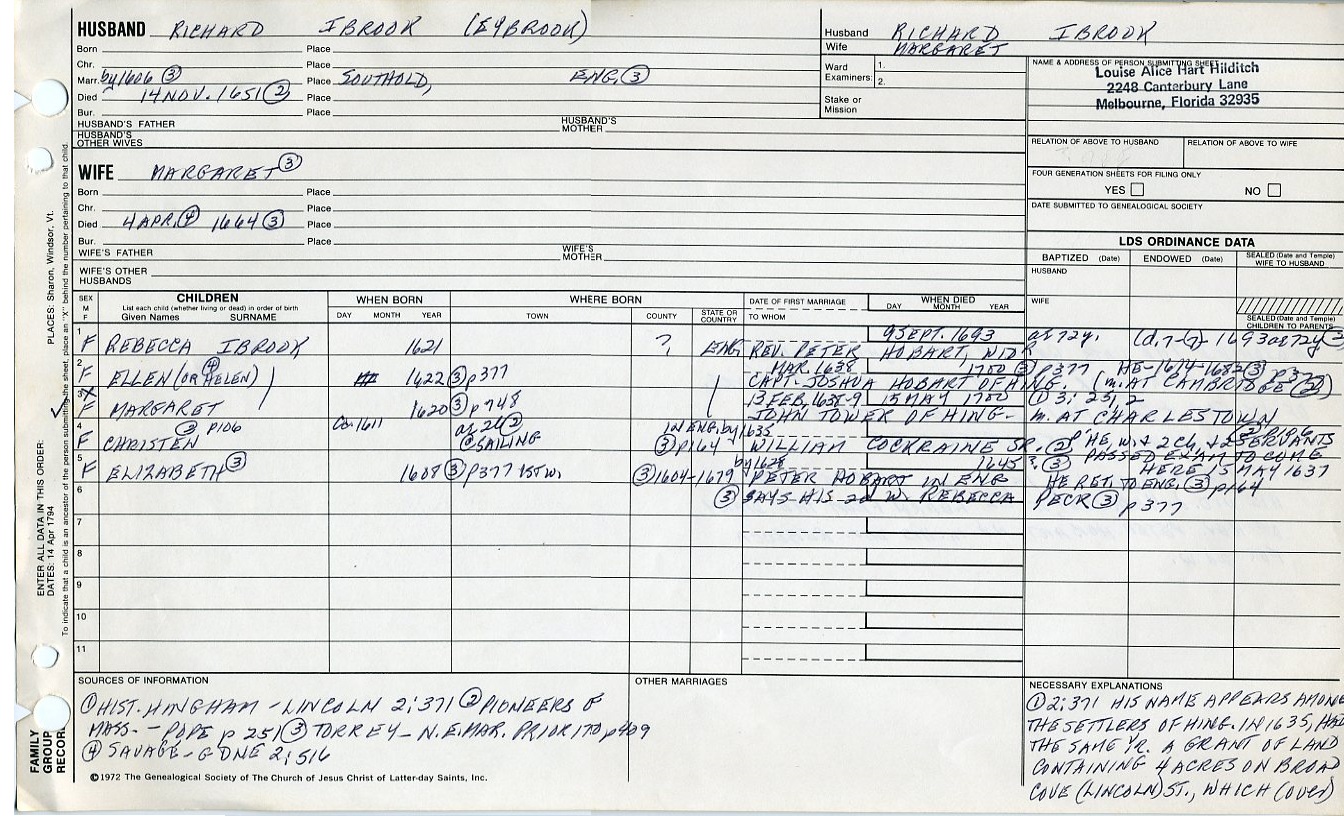 HUSBAND RICHARD IBROOK (EYBROOK)
Born Place
Chr. Place
Marr. by 1606 ③ Place SOUTHOLD, ENG. ③
Died 14 NOV. 1651 ② Place
Bur. Place
HUSBAND'S FATHER HUSBAND'S MOTHER
HUSBAND'S OTHER WIVES
Husband RICHARD IBROOK
Wife MARGARET
Ward Examiners: 1.
2.
Stake or Mission
NAME & ADDRESS OF PERSON SUBMITTING SHEET
Louise Alice Hart Hilditch
2248 Canterbury Lane
Melbourne, Florida 32935
RELATION OF ABOVE TO HUSBAND RELATION OF ABOVE TO WIFE
FOUR GENERATION SHEETS FOR FILING ONLY
YES NO
DATE SUBMITTED TO GENEALOGICAL SOCIETY
WIFE MARGARET ③
Born Place
Chr. Place
Died 4 APR. ④ 1664 ③ Place
Bur. Place
WIFE'S FATHER WIFE'S MOTHER
WIFE'S OTHER HUSBANDS
LDS ORDINANCE DATA
BAPTIZED (Date) ENDOWED (Date) SEALED (Date and Temple) WIFE TO HUSBAND
HUSBAND
WIFE
SEALED (Date and Temple) CHILDREN TO PARENTS
SEX M F CHILDREN List each child (whether living or dead) in order of birth Given Names SURNAME WHEN BORN DAY MONTH YEAR WHERE BORN TOWN COUNTY STATE OR COUNTRY DATE OF FIRST MARRIAGE TO WHOM WHEN DIED DAY MONTH YEAR
1 9 SEPT. 1693 as 72y.
F REBECCA IBROOK 1621 ? ENG REV. PETER HOBART, WIDR
2 ④ MAR. 1638 1700 ③ p377 HE-1614-1682 ③ p377
F ELLEN (OR HELEN) 1622 ③ p377 CAPT. JOSHUA HOBART OF HING. (m. AT CAMBRIDGE ②)
3 13 FEB. 1638-9 15 MAY 1700 ① 3; 25, 2
F MARGARET 1620 ③ p748 JOHN TOWER OF HING- m. AT CHARLESTOWN
4 ② p106 Ca. 1611 as 26 ② @SAILING IN ENG. by 1635
F CHRISTEN ③ p164 WILLIAM COCKRAINE SR. ② "HE, W. & 2 CH. & 2 SERVANTS
PASSED EXAM TO COME
HERE 15 MAY 1637
HE RET. TO ENG. ③ p164
5 by 1628 1645 ?, ③
F ELIZABETH ③ 1608 ③ p377 1ST W. ③ 1604-1679 PETER HOBART IN ENG
6 ③ SAYS HIS 2d W. REBECCA PECK ③ p377
7
8
9
10
11
SOURCES OF INFORMATION
① HIST. HINGHAM - LINCOLN 2; 371 ② PIONEERS OF
MASS. - POPE p 251 ③ TORREY - N.E. MAR. PRIOR TO p409
④ SAVAGE - G DNE 2; 516
OTHER MARRIAGES
NECESSARY EXPLANATIONS
① 2; 371 HIS NAME APPEARS AMONG
THE SETTLERS OF HING. IN 1635, HAD
THE SAME YR. A GRANT OF LAND
CONTAINING 4 ACRES ON BROAD
COVE (LINCOLN) ST., WHICH (OVER)
©1972 The Genealogical Society of The Church of Jesus Christ of Latter-day Saints, Inc.
FAMILY GROUP RECORD
ENTER ALL DATA IN THIS ORDER:
DATES: 14 Apr 1794
PLACES: Sharon, Windsor, Vt.
To indicate that a child is an ancestor of the person submitting the sheet, place an "X" behind the number pertaining to that child.